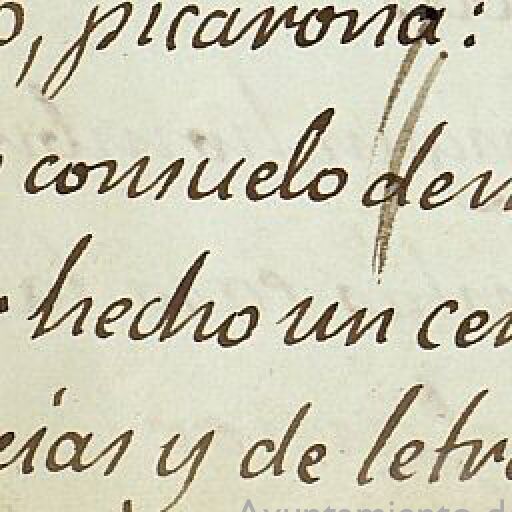 , picarona:
consuelo de
hecho un ce
cias y de letr
Ayuntamiento d